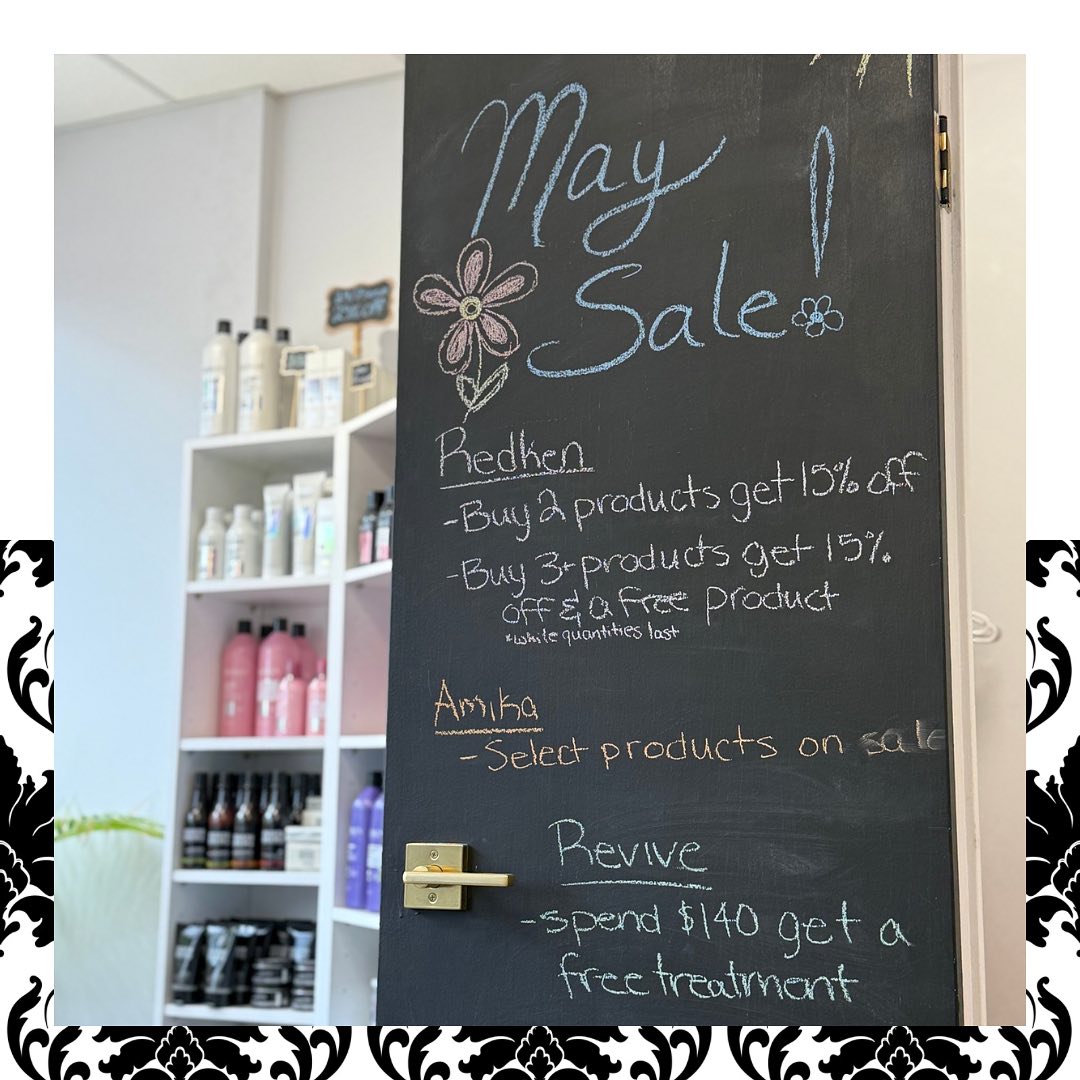 May
Sale!
Redken
-Buy 2 products get 15% off
-Buy 3+ products get 15%
off & a free product
*while quantities last
Amika
-Select products on sale
Revive
-spend $140 get a
free treatment